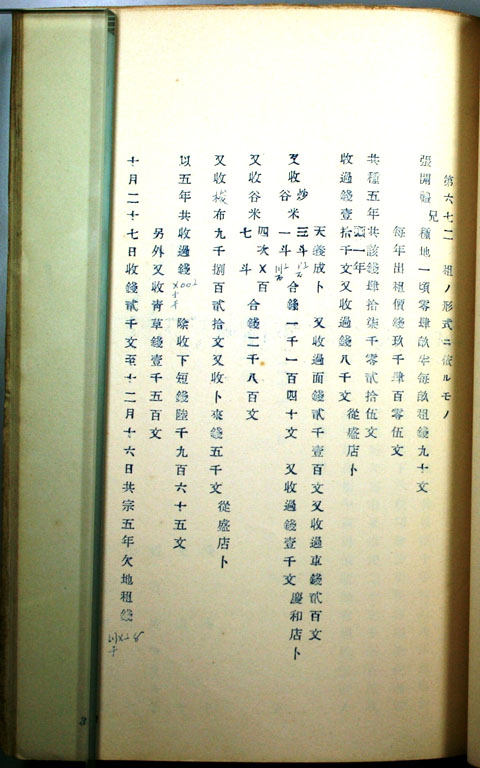 第六七二 租ノ形式ニ依ルモノ
張開 兒種地一頃零肆畝 每畝租錢九十文
每年出租價錢玖千肆百零伍文
共種五年共該錢肆拾柒千零貳拾伍文
收過錢壹拾千文又收過錢八千文 從盛店卜
頭一年
天義成卜 又收過面錢貳千壹百文又收過車錢貳百文
又收 炒米三斗 谷一斗 合錢一千一百四十文 又收過錢壹千文 慶和店卜
又收谷米 四次 百 七斗 合錢二千八百文
又收 布九千捌百貳拾文又收卜來錢五千文 從盛店卜
以五年共收過錢 除收下短錢陸千九百六十五文
另外又收靑草錢壹千五百文
十月二十七日收錢貳千文至十二月十六日共宗五年欠地租錢
3